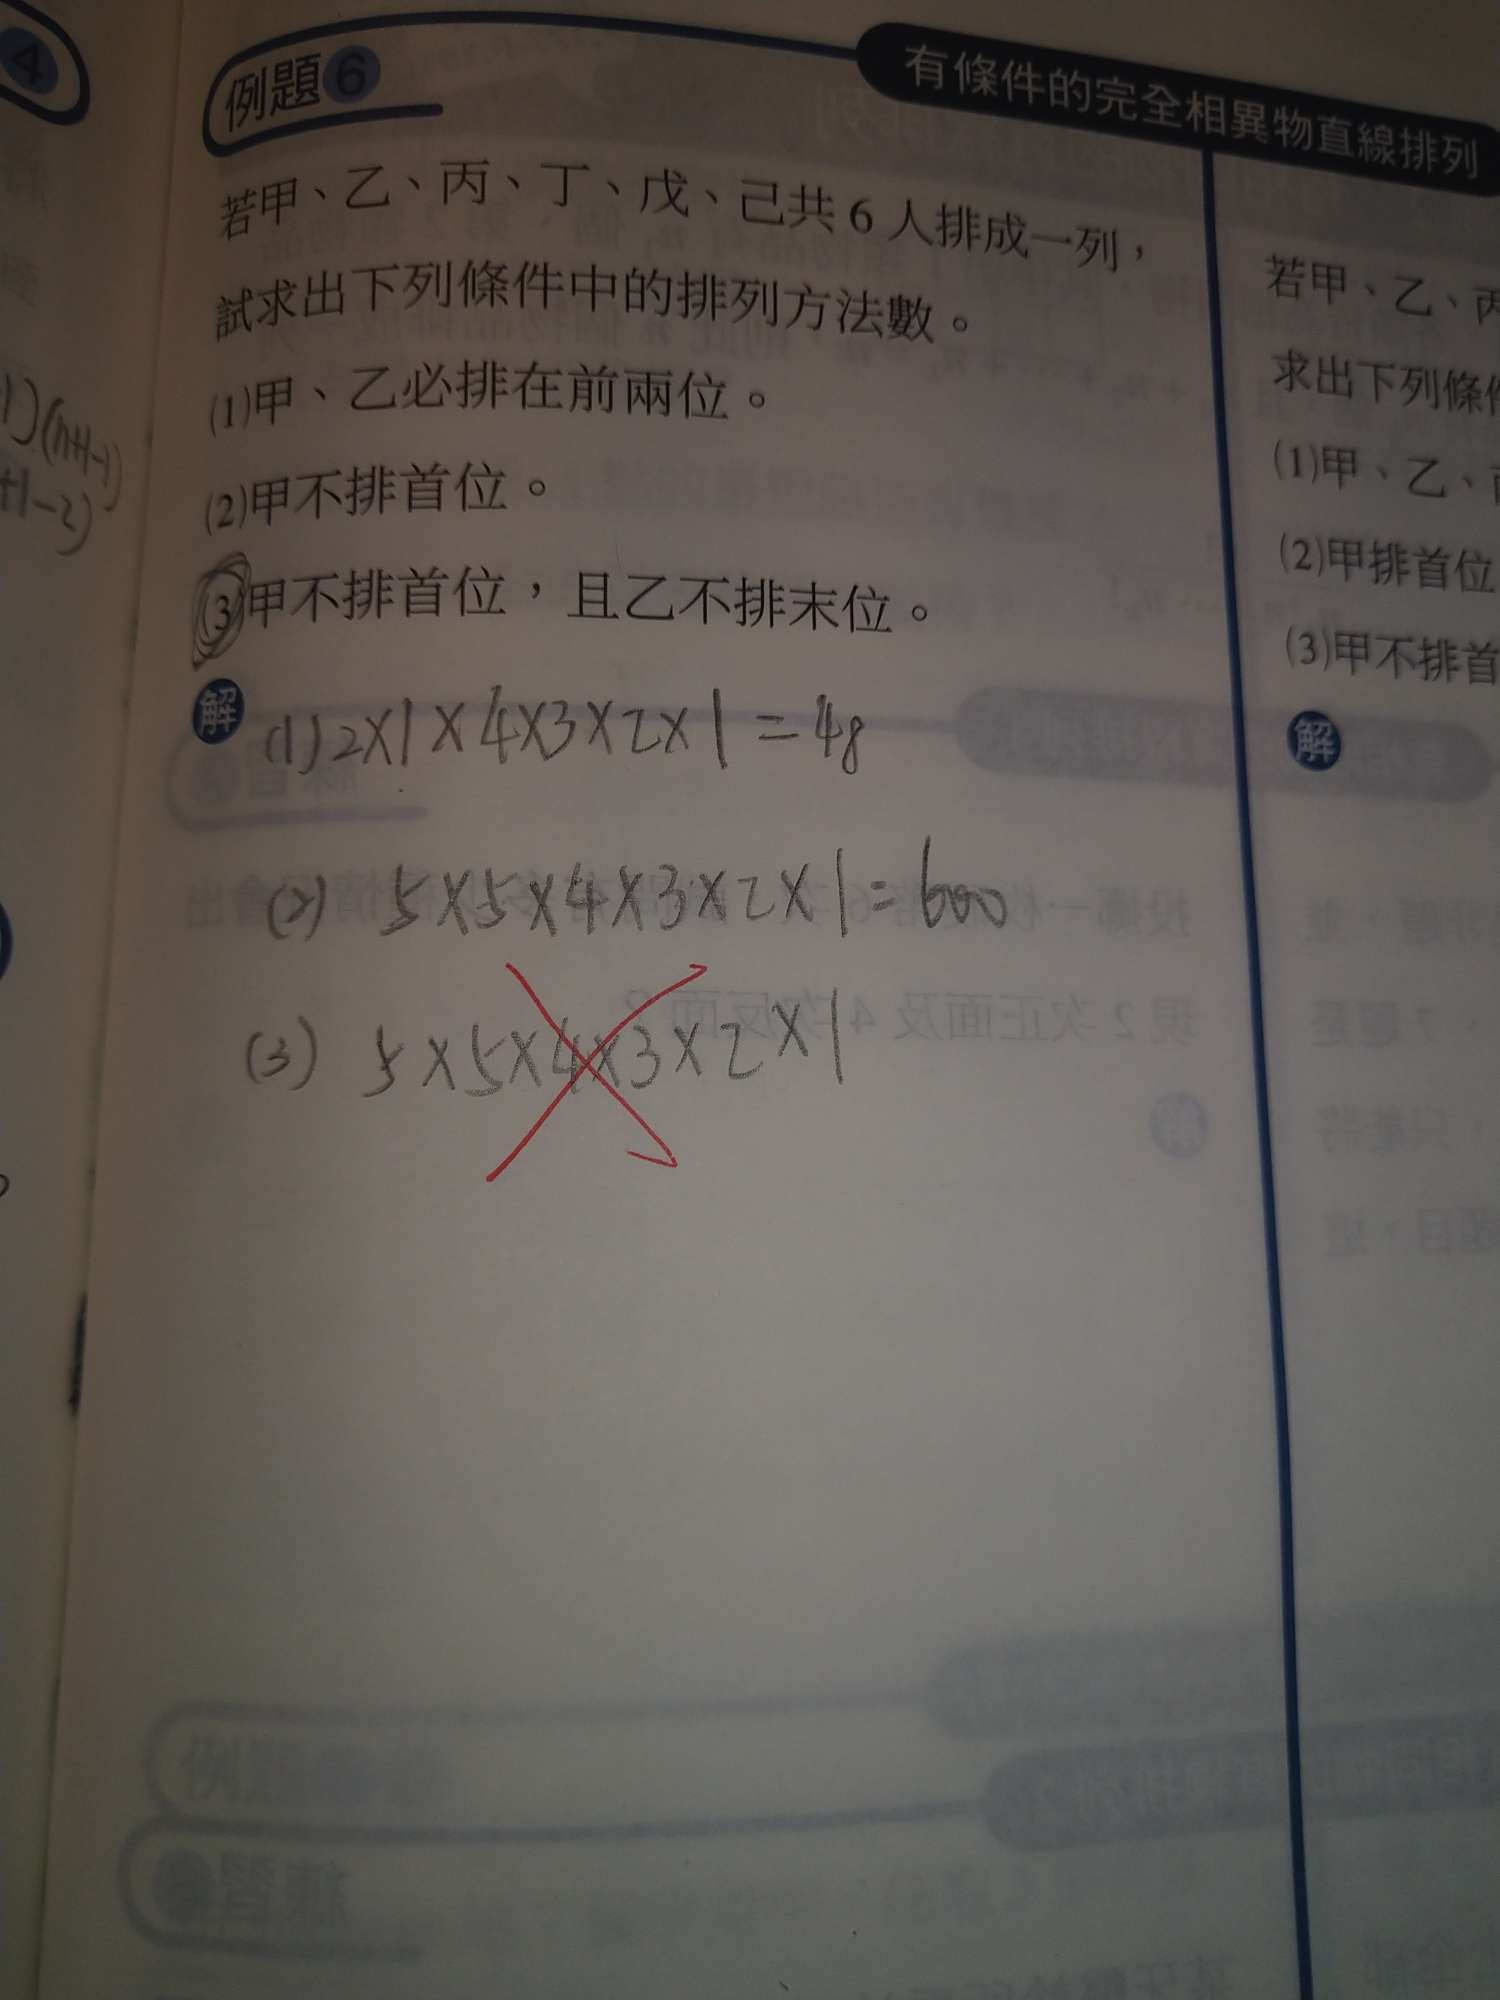 4
例題6
有條件的完全相異物直線排列
若甲、乙、丙、丁、戊、己共6人排成一列，
試求出下列條件中的排列方法數。
(1)甲、乙必排在前兩位。
(2)甲不排首位。
(3)甲不排首位，且乙不排末位。
解
(1) 2×1×4×3×2×1=48
(2) 5×5×4×3×2×1=600
(3) 5×5×4×3×2×1
1)(n+1-1)
+1-2)
若甲、乙、丙
求出下列條件
(1)甲、乙、
(2)甲排首位
(3)甲不排首
解